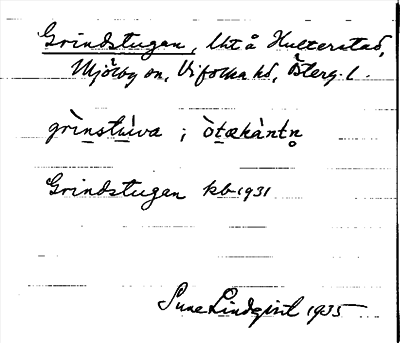 Grindstugan, lht å Hulterstad,
Mjölby sn, Vifolka hd, Österg. l.
grìnstúva ; òtækàntn̥
Grindstugan kb 1931
Sune Lindqvist 1935